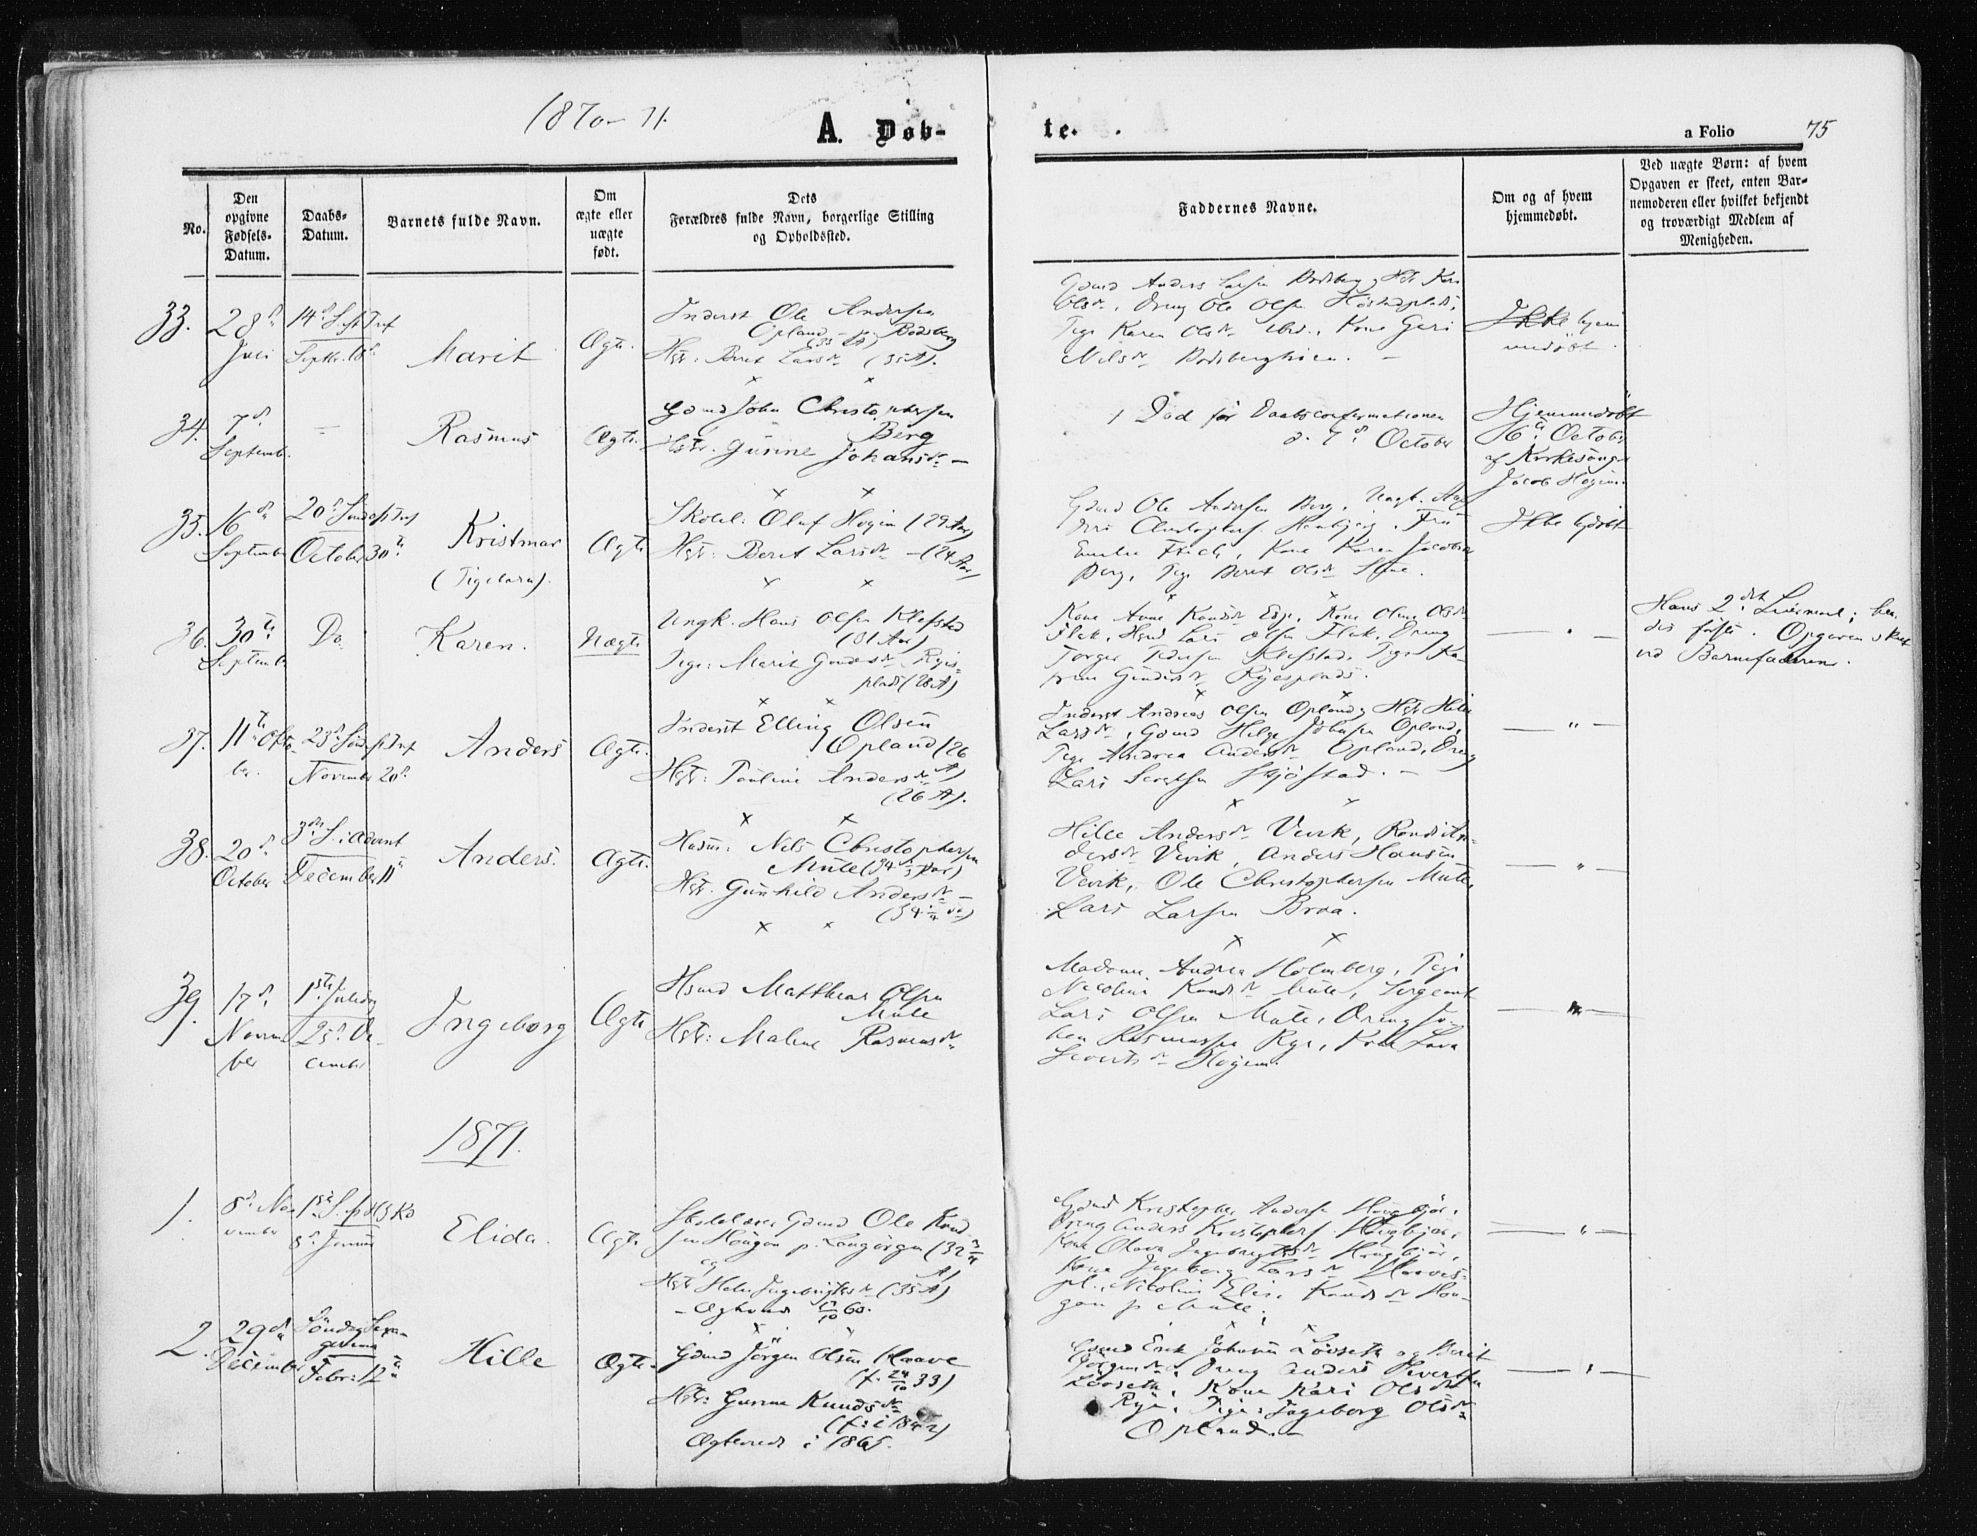 1870-71.
A. Døb-
te.
a Folio 75
No.
Den opgivne Fødsels-Datum.
Daabs-Datum.
Barnets fulde Navn.
Om ægte eller uægte født.
Dets Forældres fulde Navn, borgerlige Stilling og Opholdssted.
Faddernes Navne.
Om og af hvem hjemmedøbt.
Ved uægte Børn: af hvem Opgaven er skeet, enten Barnemoderen eller hvilket bekjendt og troværdigt Medlem af Menigheden.
33.
28de Juli
Septbr. 18de
Marit
Ægte.
Inderst Ole Andersen
Opland (35 A)
Hstr: Berit Larsdr (35 A).
Tege Karen Olsdr ibid., Kone Guri
Nilsdr
Ikke hjem
medøbt.
34.
7de
Septemb.
Rasmus
Ægte.
Gdmd John Christophersen
Berg
Hstr. Gurine Johansdr
Død før Daabsconfirmationen
d. 7de October
Hjemmedøbt
6te October
af Kirkesanger
Jacob Høgim
35.
16de
September
20de Sønd e. Tref
October 30te
Kristmar
(Pigebarn).
Ægte
Skolel: Oluf Høgim (29 Aar)
Hstr: Beret Larsdr (24 Aar)
Gdmd Ole Andersen Berg,
Kone Karen Jacobsdr
Berg, Pige Beret Olsdr
Ikke hjdøbt
36.
30te
Septembr
Do
Karen.
Uægte
Ungk. Hans Olsen Klefstad
(31 Aar)
Pige: Marit Gundersdr Ryes-
plads (28 A)
Kone Anne Knudsdr Esp, Kone Oline Olsdr
Flak, Hsmd Lars Olsen Flak, Dreng
Torger Pedersen Klefstad, Pige Ka-
Gundersdr Ryesplads.
Hans 2det Leiermaal; hen-
des første. Opgaven skeet
ved Barnefaderen.
37.
11te Okto-
ber
23de Sønd e. Tref
November 20de
Anders
Ægte.
Inderst Elling Olsen
Opland (26 A)
Hstr: Pauline Andersdr
(26 A).
Inderst Andreas Olsen Opland, Hstr
Larsdr, Gdmd Helge Johnsen Opland,
Pige Andrea Andersdr Opland, Dreng
Lars Sivertsen Skjøstad.
38.
20de
October
3die S. i Advent
December 11te
Anders.
Ægte.
Husm: Nils Christophersen
Mule (34 Aar)
Hstr. Gunhild Andersdr
Hille Andersdr Vevik, Randi An-
dersdr Vevik, Anders Hansen
Vevik, Ole Christophersen Mule,
Lars Larsen Braa.
39.
17de
Novem
ber
1ste Juledag
25de De-
cember
Ingeborg
Ægte
Hsmd Matthias Olsen
Mule
Hstr: Malene Rasmusdr
Madame Andrea Holmberg, Pige
Nicoline Knudsdr Mule, Sergeant
Lars Olsen Mule, Dreng Jo-
han Rasmussen Rye, Kone Lava
Sivertsdr Høgim.
1871.
1.
8de No-
vember
8de Januar
Elida.
Ægte
Skolelærer Gdmd Ole Knud-
sen Hougan p. Langørgen (32 3/4
A)
og
Hstr Helen Ingebrigtsdr (35 A)
Ægteviet 17/10 60.
Gdmd Kristopher Andersen Haugbjør,
Dreng Anders Kristophers. Haugbjør,
Kone Olava Ingebrigtsdr Haugbjør,
Kone Ingeborg Larsdr Haaves-
pl., Nicoline Elis. Knudsdr Hou-
gan p Mule.
2.
29de
December
Søndag Sexa-
gesima
Febr: 12te
Hille
Ægte.
Gdmd Jørgen Olsen Haave
(f. 24/10 33)
Hstr: Gurine Knudsdr
(f: i 1842)
Ægteviet i 1865.
Gdmd Erik Johnsen Løvseth og Berit
Jørgensdr, Dreng Anders Sivertsen
Løvseth, Kone Kari Olsdr
Rye, Pige: Ingeborg Olsdr
Opland.